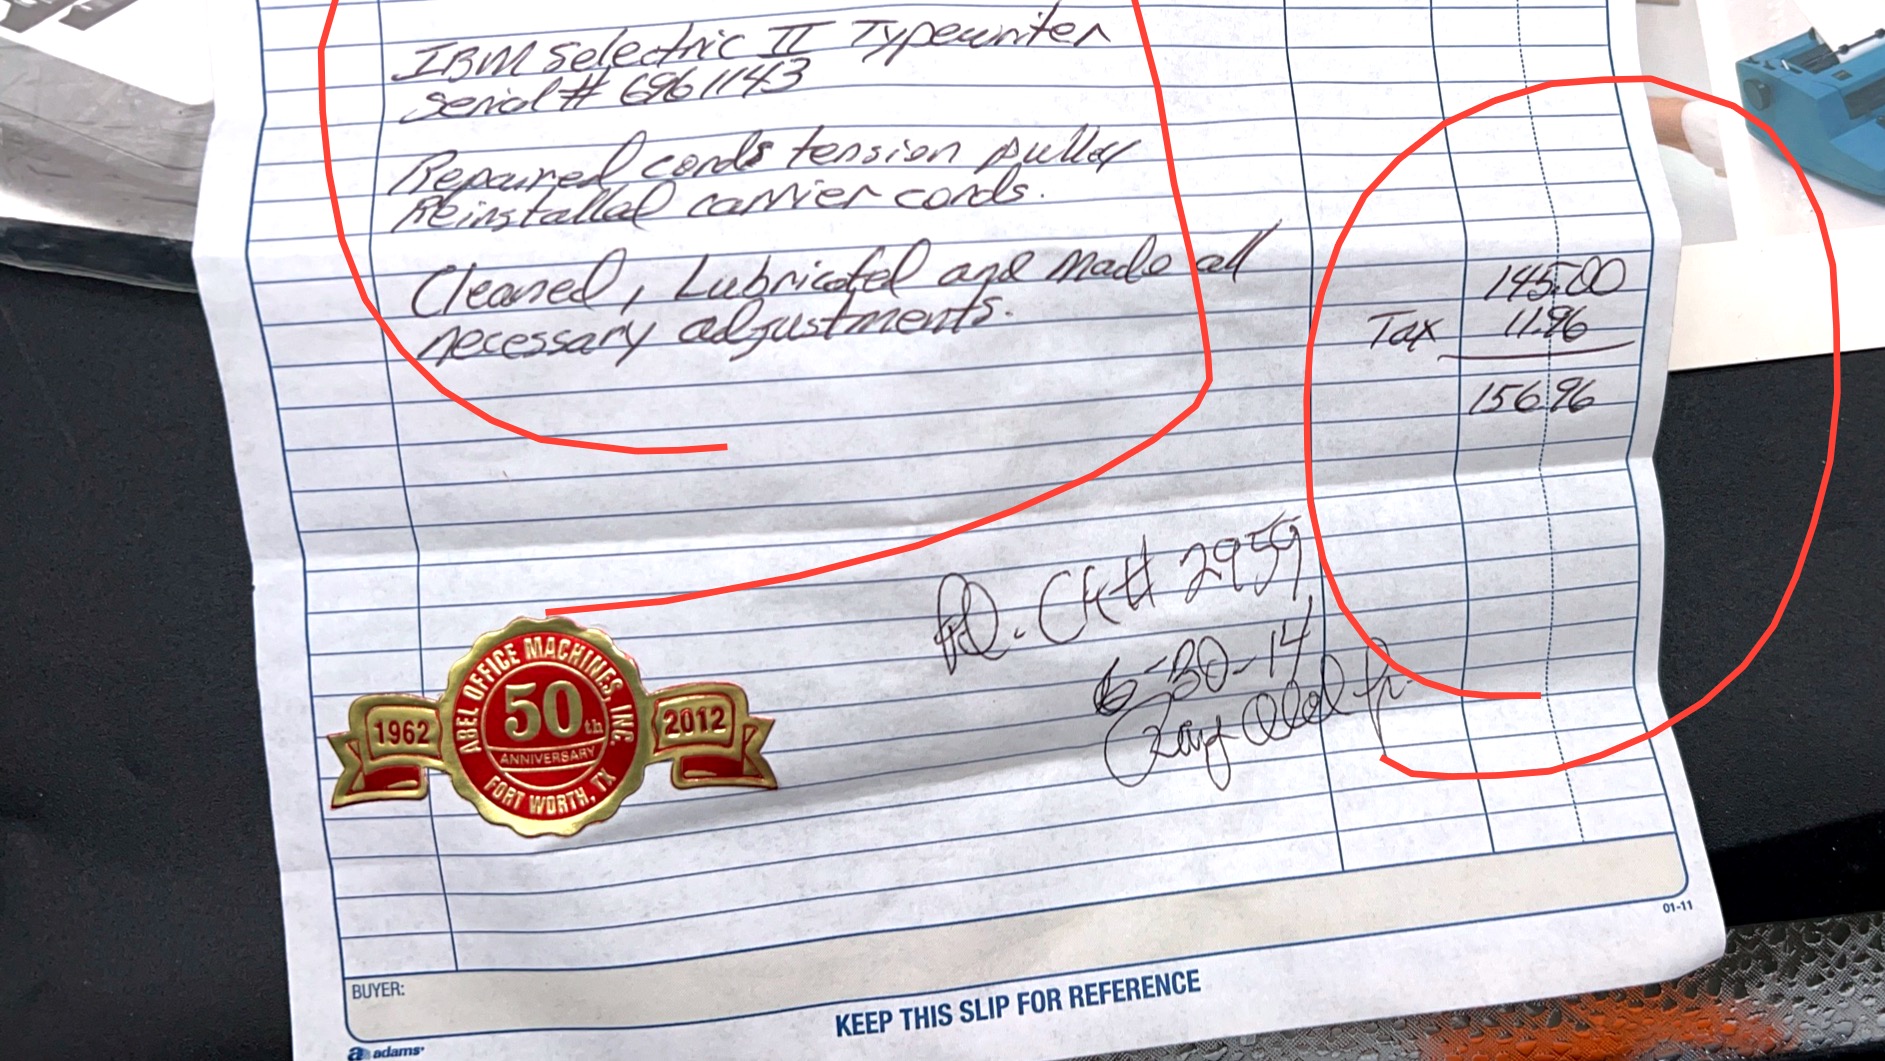 IBM Selectric II Typewriter
Serial # 6961143
Repaired cords tension pulley
Reinstalled carrier cords.
Cleaned, Lubricated and Made all
necessary adjustments.
145.00
Tax 11.96
156.96
Pd. Ck# 2959
6-30-14
ABEL OFFICE MACHINES, INC.
1962 50th 2012
ANNIVERSARY
FORT WORTH, TX
01-11
BUYER:
KEEP THIS SLIP FOR REFERENCE
adams